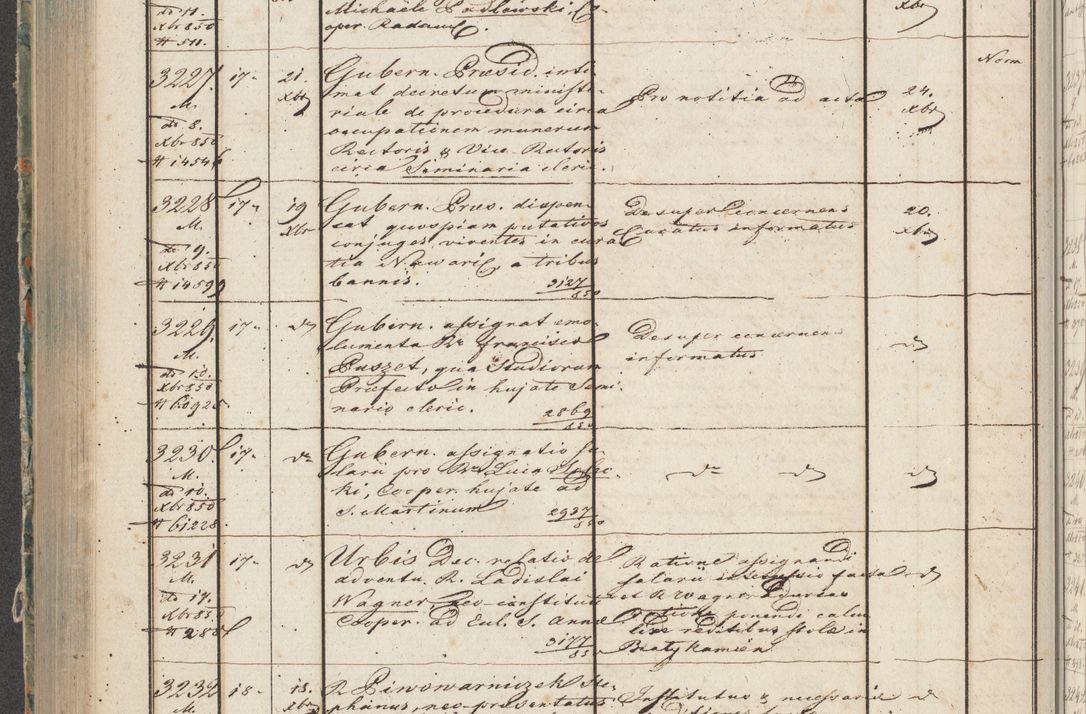 Xbr 850
# 511.
oper. Radomi.
Xbr
Norm
3227.
M.
dto 8.
Xbr 850
# 14546
17.
21.
Xbr
Gubern. Præsid. inti-
mat decretum ministe-
riale de procedura circa
occupationem munerum
Rectoris & Vice-Rectoris
circa Seminaria cleric.
Pro notitia et ad acta
24.
Xbr
3228
M.
dto 9.
Xbr 850
# 14599
17.
19
Xbr
Gubern. Præs. dispen-
cat quospiam putativos
conjuges viventes in cura
tia Nawaric, a tribus
bannis. 3127/850
Desuper concernens
Curatus informatus
20.
Xbr
3229.
M.
dto 10.
Xbr 850
# 60925.
17.
do
Gubern. assignat emo-
lumenta Rdo Francisco
Puszet, qua Studiorum
Præfecto in hujate Semi-
nario cleric. 2869/850
Desuper concernens
informatus
do
3230.
M.
dto 10.
Xbr 850
# 61228.
17.
do
Gubern. assignatio sa-
larii pro Rdo Luca
ki, Cooper. hujate ad
S. Martinum 2937/850
do do
do
3231
M.
dto 17.
Xbr 850
17.
do
Urbis Dec. relatio de
adventu R. Ladislai
Wagner neo-constituti
Cooper. ad Eccl. S. Annæ
3177/850
Ratione assignandi
salarii intercessio facta
et R. Wagner
ponendi calcu-
reditibus stolæ in
Biatykamien
do
3232
M.
18.
18.
Xbr
R. Piwowarniczek Ste-
phanus, neo-præsentatus
Institutus & necessariæ
do